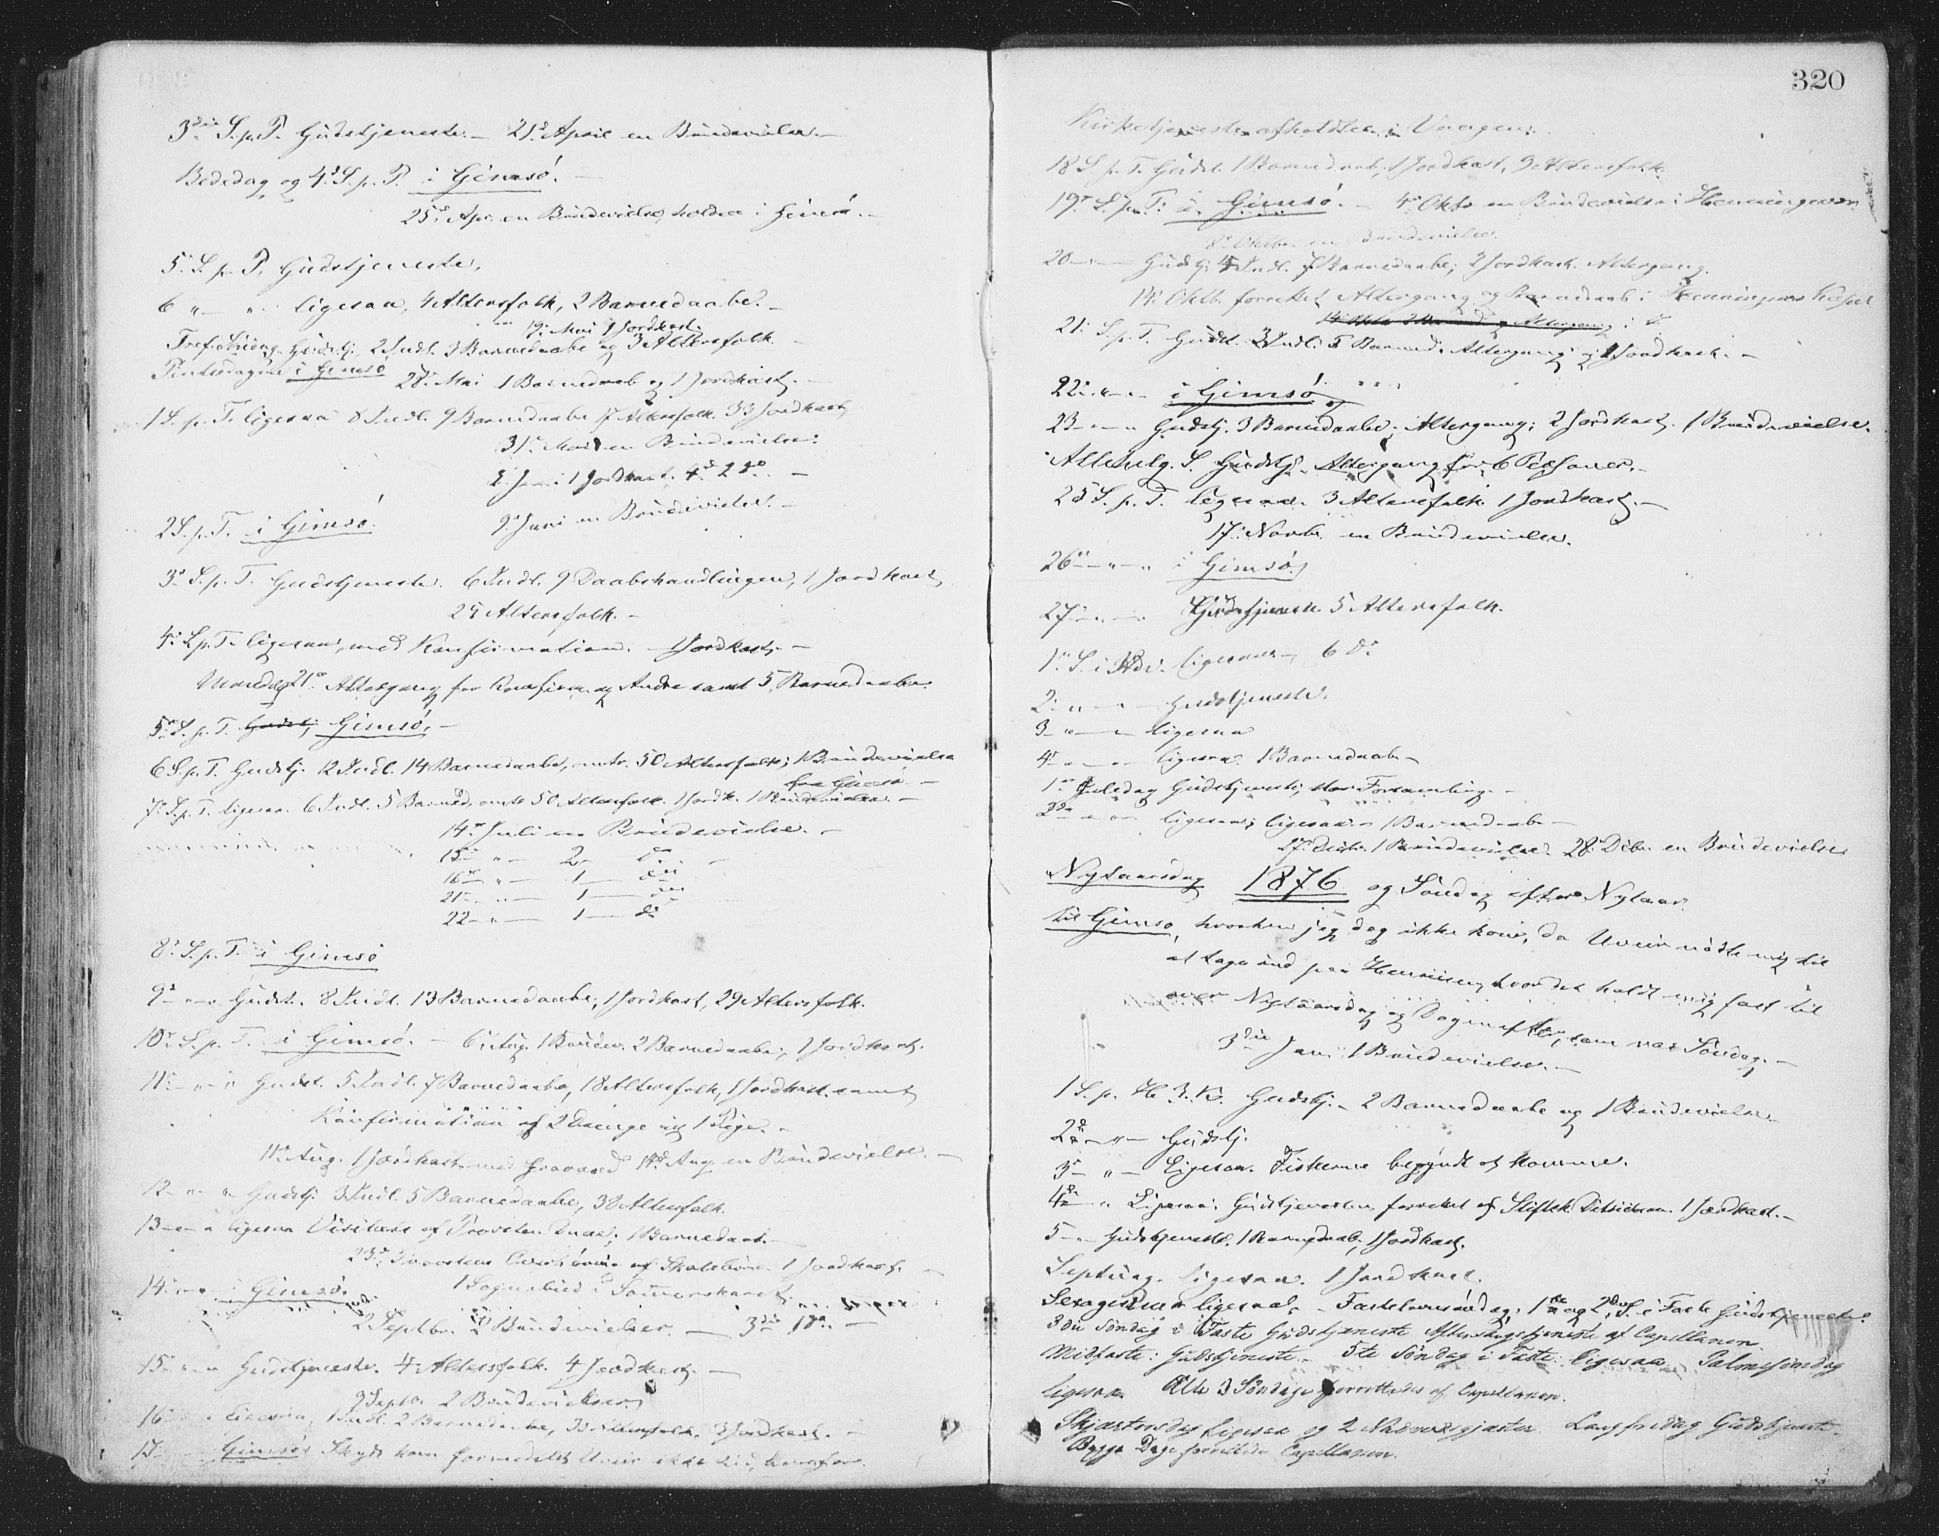 3die S. p. P. Gudstjeneste. – 21d April en Brudevielse. –
Bededag og 4d S. p. P. i Gimsø. –
25d Apr. en Brudevielse holden i Gimsø. –
5. S. p. P. Gudstjeneste.
6 " – " ligesaa, 4 Altersfolk, 2 Barnedaabe. –
19. Mai 1 Jordkast.
Gudstj. 2 Indl. 3 Barnedaabe og 3 Altersfolk. –
Pintsedagen i Gimsø 28. Mai 1 Barnedaab og 1 Jordkast. –
1 S. p. T. ligesaa 8 Indl. 9 Barnedaabe 17 Altersfolk. 3 Jordkast
31. Mai en Brudevielse.
Juni 1 Jordkast. 4d 2 do. –
2 S. p. T. i Gimsø. 9. Juni en Brudevielse. –
3. S. p. T. Gudstjeneste. 6 Indl. 9 Daabshandlinger, 1 Jordkast
24 Altersfolk. –
4. S. p. T. ligesaa, med Konfirmation. 1 Jordkast. –
Mandag 21. Altergang for Konfirm. og Andre samt 5 Barnedaabe.
5. S. p. T. Gudstj. Gimsø. –
6 S. p. T. Gudstj. 12 Indl. 14 Barnedaabe, omtr. 50 Altersfolk; 1 Brudevielse
fra Gimsø. –
7. S. p. T. ligesaa. 6 Indl. 5 Barned. omtr 50 Altersfolk. 1 Jordk. 1 Brudevielse. –
14. Juli en Brudevielse. –
15 – " – 2 – do –
16 – " – 1 – do
21 – " – 1 – do
22 – " – 1 – do
8. S. p. T. i Gimsø
9 – " – " Gudst. 8 Indl. 13 Barnedaabe, 1 Jordkast, 29 Altersfolk.
10. S. p. T. i Gimsø. – 6. Aug. 1 Brudev. 2 Barnedaabe, 1 Jordkast.
11 – " – " Gudst. 5 Indl. 7 Barnedaabe, 18 Altersfolk, 1 Jordkast samt
Konfirmation af 2 Drenge og 1 Pige. –
11. Aug. 1 Jordkast med 14d Aug en Brudevielse. –
12 – " – " Gudstj. 3 Indl. 5 Barnedaabe, 30 Altersfolk.
13 – " – " ligesaa Visitats af Provsten 1 Barnedaab. –
23. Provstens af Skolebørn. 1 Jordkast. –
14. – " – " i Gimsø. 1 Sognebud i
2 Septbr. Brudevielser. – 3die 1 do. –
15. – " – " Gudstjeneste. 4 Altersfolk. 4 Jordkast. –
9 Septbr 2 Brudevielser
16 – " – " Ligesaa, 1 Indl. 2 Barnedaabe, Altersfolk. 3 Jordkast. –
17 – Gimsø. Skyds kom formedelst Uveir ikke
320
Kirketjeneste afholdtes i Vaagen:
18 S. p. T. Gudst. 1 Barnedaab, 1 Jordkast, 3 Altersfolk.
19. S. p. T. i Gimsø. – 4. Oktb en Brudevielse i Henningsvær
8. Oktbr. en Brudevielse.
20 – " – Gudstj. 4 Indl. 7 Barnedaabe, 2 Jordkast. Altergang.
14. Oktb. forrettet Altergang og Barnedaab i Henningsvær Kapel
21. S. p. T. Gudst. 3 Indl. 5 Barned. Altergang og 1 Jordkast. –
22. – " – i Gimsø
23 – " – " Gudstj. 3 Barnedaabe; Altergang; 2 Jordkast. 1 Brudevielse.
Allehelg. S. Gudstj. Altergang for 6 Personer. –
25 S. p. T. ligesaa. 3 Altersfolk. 1 Jordkast. –
17. Novbr. en Brudevielse.
26 – " – " i Gimsø.
27 – " – Gudstjeneste. 5 Altersfolk.
1. S. i Adv. ligesaa 6 do
2. " – " – Gudstjeneste.
3 – " – – ligesaa
4 – " – – ligesaa 1 Barnedaab –
1ste Juledag Gudstjeneste, stor Forsamling. –
2den – " – ligesaa; ligesaa – 1 Barnedaab –
27. Decbr. 1 Brudevielse. 28. Dcbr. en Brudevielse
Nytaarsdag 1876 og Søndag efter Nytaar
til Gimsø, hvorhen jeg dog ikke kom, da Uveir nødte mig til
at tage ind paa Henningsv. hvor det holdt mig fast til
over Nytaarsdag og Dagen efter, som var Søndag. –
3die Jan. 1 Brudevielse. –
1 S. p. H. 3. K. Gudstj. – 2 Barnedaabe og 1 Brudevielse.
2d – " – Gudstj.
3. – " – Ligesaa. Fiskerne begyndt at komme.
4de – " Ligesaa: Gudstjenesten forrettet af Stiftsk. 1 Jordkast. –
5 – " Gudstjeneste. 1 Barnedaab, 1 Jordkast.
Septuag. ligesaa. 1 Jordkast.
Sexagesima ligesaa. – Fastelavnssøndag, 1ste og 2den S. i Faste Gudstjeneste.
3die Søndag i Faste Gudstjeneste Aftensangstjeneste af Capellanen.
Midfaste: Gudstjeneste. 5te Søndag i Faste: ligesaa. Palmesøndag
ligesaa. Alle 3 Søndage forrettedes af Capellanen.
Skjærtorsdag Ligesaa og 2 Nadvergjæster. Langfredag Gudstjeneste.
Begge Dage forrettede Capellanen.